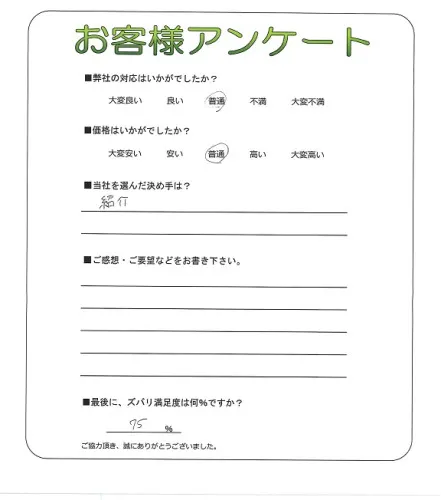 お客様アンケート
■弊社の対応はいかがでしたか?
大変良い 良い 普通 不満 大変不満
■価格はいかがでしたか?
大変安い 安い 普通 高い 大変高い
■当社を選んだ決め手は?
紹介
■ご感想・ご要望などをお書き下さい。
■最後に、ズバリ満足度は何%ですか?
75 %
ご協力頂き、誠にありがとうございました。